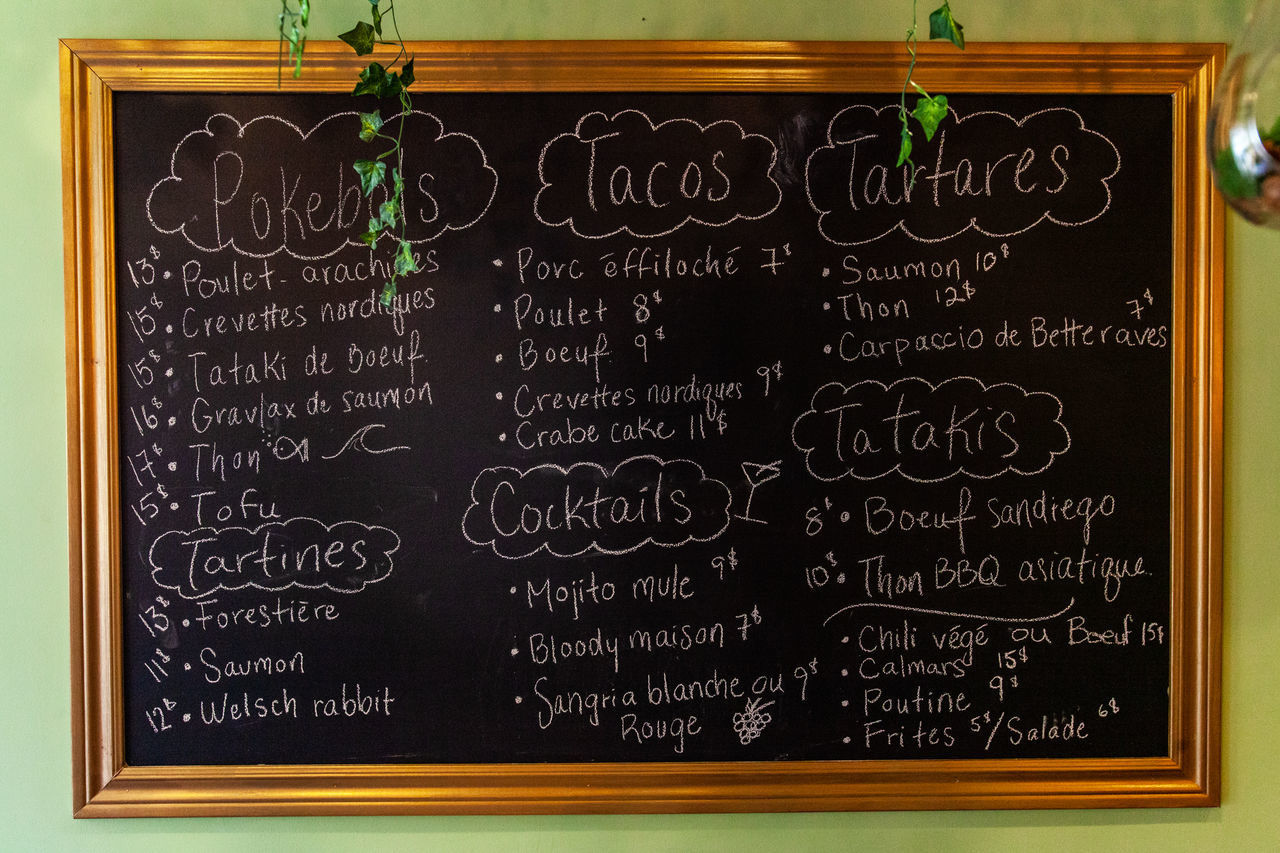 Pokebols
13$ • Poulet-arachides
15$ • Crevettes nordiques
15$ • Tataki de Boeuf
16$ • Gravlax de saumon
17$ • Thon
15$ • Tofu
Tartines
13$ • Forestière
11$ • Saumon
12$ • Welsch rabbit
Tacos
• Porc éffiloché 7$
• Poulet 8$
• Boeuf 9$
• Crevettes nordiques 9$
• Crabe cake 11$
Cocktails
• Mojito mule 9$
• Bloody maison 7$
• Sangria blanche ou 9$
Rouge
Tartares
• Saumon 10$
• Thon 12$
• Carpaccio de Betteraves 7$
Tatakis
8$ • Boeuf Sandiego
10$ • Thon BBQ asiatique.
• Chili végé ou Boeuf 15$
• Calmars 15$
• Poutine 9$
• Frites 5$/Salade 6$